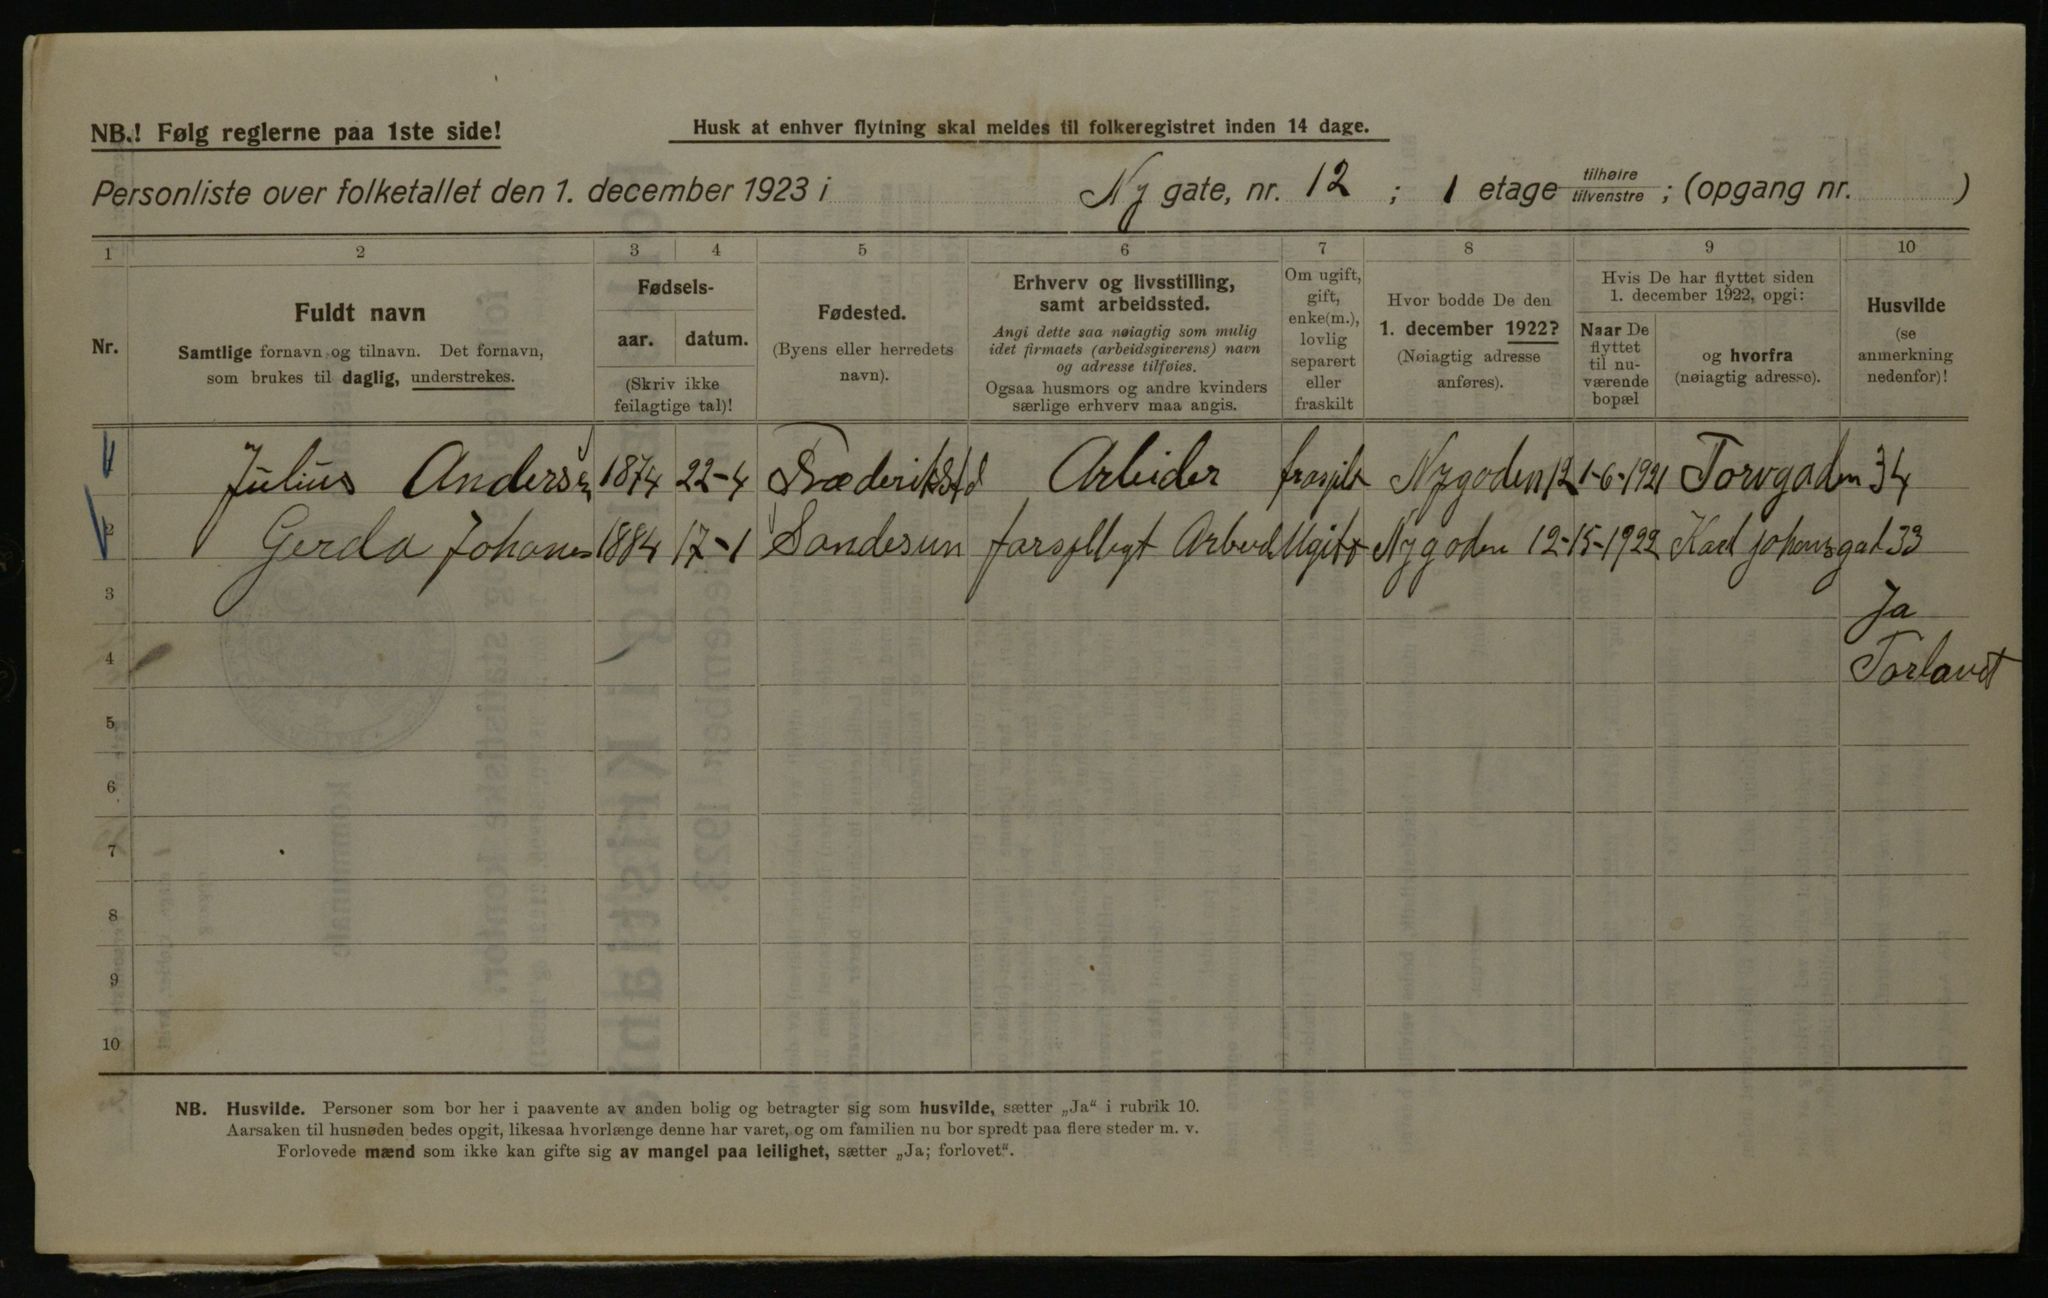 NB.! Følg reglerne paa 1ste side!
Husk at enhver flytning skal meldes til folkeregistret inden 14 dage.
Personliste over folketallet den 1. december 1923 i Ny gate, nr. 12 ; 1 etage tilhøire tilvenstre ; (opgang nr. )
1 2 3 4 5 6 7 8 9 10
Nr.
Fuldt navn
Samtlige fornavn og tilnavn. Det fornavn,
som brukes til daglig, understrekes.
Fødsels-
aar. datum.
(Skriv ikke
feilagtige tal)!
Fødested.
(Byens eller herredets
navn).
Erhverv og livsstilling,
samt arbeidssted.
Angi dette saa nøiagtig som mulig
idet firmaets (arbeidsgiverens) navn
og adresse tilføies.
Ogsaa husmors og andre kvinders
særlige erhverv maa angis.
Om ugift,
gift,
enke(m.),
lovlig
separert
eller
fraskilt
Hvor bodde De den
1. december 1922?
(Nøiagtig adresse
anføres).
Hvis De har flyttet siden
1. december 1922, opgi:
Naar De
flyttet
til nu-
værende
bopæl
og hvorfra
(nøiagtig adresse).
Husvilde
(se
anmerkning
nedenfor)!
1 Julius Andersn 1874 22-4 Fræderikstd Arbeider Nygoden 12 1-6-1921 Torvgaden 34
2 Gerda Johanes 1884 17-1 Sandesun Arbeid Ugift Nygoden 12-15-1922 Karl johansgad 33
3 Ja
4 Forlovet
5
6
7
8
9
10
NB. Husvilde. Personer som bor her i paavente av anden bolig og betragter sig som husvilde, sætter „Ja“ i rubrik 10.
Aarsaken til husnøden bedes opgit, likesaa hvorlænge denne har varet, og om familien nu bor spredt paa flere steder m. v.
Forlovede mænd som ikke kan gifte sig av mangel paa leilighet, sætter „Ja; forlovet“.